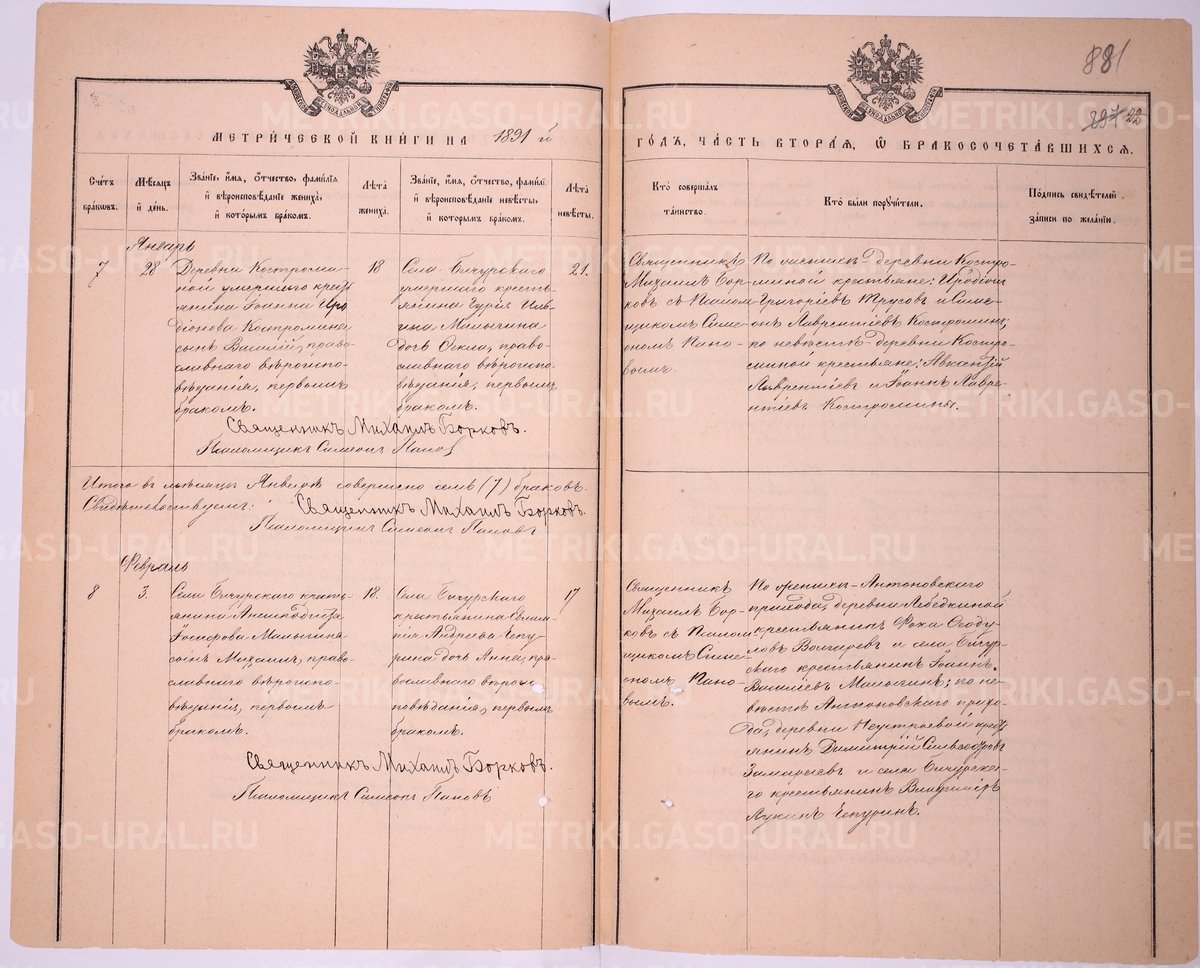 881
897 22
МЕТРИЧЕСКОЙ КНИГИ НА 1891 й
ГОДЪ, ЧАСТЬ ВТОРАЯ, Ѡ БРАКОСОЧЕТАВШИХСЯ.
Счетъ браковъ.
Мѣсяцъ и день.
Званіе, имя, отчество, фамилія
и вѣроисповѣданіе жениха,
и которымъ бракомъ.
Лѣта
жениха.
Званіе, имя, отчество, фамилі
и вѣроисповѣданіе невѣсты,
и которымъ бракомъ.
Лѣта
невѣсты.
Кто совершалъ
таинство.
Кто были поручители.
Подпись свидѣтелей
записи по желанію.
Январь
7
28
Деревни Костроми-
ной умершаго крест
янина Іоанна Иро
діонова Костромина
сынъ Василій, право-
славнаго вѣроиспо-
вѣданія, первымъ
бракомъ.
18
Села Бичурскаго
умершаго кресть-
янина Гурія Иль-
ина Малыгина
дочь Ѳекла, право-
славнаго вѣроиспо-
вѣданія, первымъ
бракомъ.
21.
Священникъ
Михаилъ Бор-
ковъ съ Псалом-
щикомъ Симе-
ономъ Попо-
вымъ.
По женихѣ деревни Костро-
миной крестьяне: Иродіонъ
Григоріевъ Трусовъ и Симе-
онъ Лаврентіевъ Костроминъ;
по невѣстѣ деревни Костро-
миной крестьяне:
Лаврентіевъ и Іоаннъ Лавре-
нтіевъ Костромины.
Священникъ Михаилъ Борковъ.
Псаломщикъ Симеонъ Поповъ
Итого въ мѣсяцѣ Январѣ совершено семь (7) браковъ.
Свидѣтельствуемъ: Священникъ Михаилъ Борковъ.
Псаломщикъ Симеонъ Поповъ
Февраль
8
3.
Села Бичурскаго кресть-
янина
Іосифова Малыгина
сынъ Михаилъ, право-
славнаго вѣроиспо-
вѣданія, первымъ
бракомъ.
18.
Села Бичурскаго
крестьянина
Андреева Чепу-
рина дочь Анна, пра-
вославнаго вѣроис-
повѣданія, первымъ
бракомъ.
17
Священникъ
Михаилъ Бор-
ковъ съ Псалом-
щикомъ Симе-
ономъ Попо-
вымъ.
По женихѣ Антоновскаго
прихода, деревни Лебедкиной
крестьянинъ Фока Ѳеоду-
ловъ Волгаревъ и села Бичур-
скаго крестьянинъ Іоаннъ
Василіевъ Малыгинъ; по не-
вѣстѣ Антоновскаго прихо-
да, деревни Неустроевой крест
янинъ Димитрій Сильвестровъ
Замараевъ и села Бичурска-
го крестьянинъ Владиміръ
Лукинъ Чепуринъ.
Священникъ Михаилъ Борковъ.
Псаломщикъ Симеонъ Поповъ
METRIKI.GASO-URAL.RU